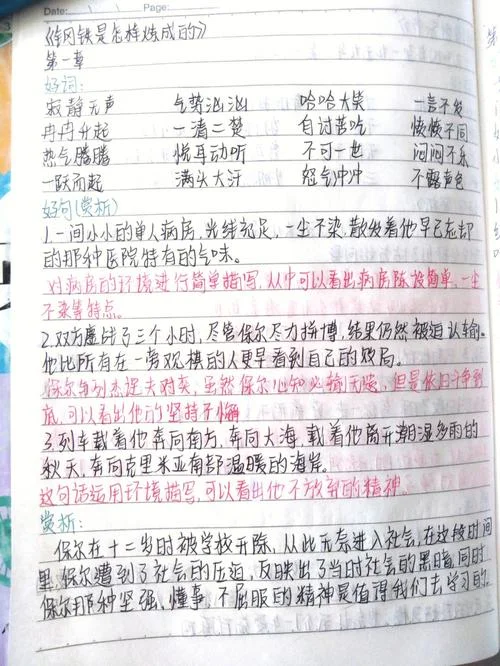 Date: Page:
《钢铁是怎样炼成的》
第一章
好词:
寂静无声 气势汹汹 哈哈大笑 一言不发
冉冉升起 一清二楚 自讨苦吃 截然不同
热气腾腾 悦耳动听 不可一世 闷闷不乐
一跃而起 满头大汗 怒气冲冲 不露声色
好句(赏析)
1.一间小小的单人病房,光线充足,一尘不染,散发着他早已忘却
的那种医院特有的气味。
对病房的环境进行简单描写,从中可以看出病房陈设简单,一尘
不染等特点。
2.双方鏖战了三个小时,尽管保尔尽力拼博,结果仍然被迫认输。
他比所有在一旁观棋的人更早看到自己的败局。
保尔与列杰涅夫对弈,虽然保尔心知必输无疑,但是依旧斗争到
底,可以看出他的坚持不懈
3.列车载着他奔向南方,奔向大海,载着他离开潮湿多雨的
秋天,奔向克里米亚南部温暖的海岸。
这句话运用环境描写,可以看出他不放弃的精神。
赏析:
保尔在十二岁时被学校开除,从此无奈进入社会,在这段时间
里,保尔遭到了社会的压迫,反映出了当时社会的黑暗,同时
保尔那种坚强、懂事,不屈服的精神是值得我们去学习的。